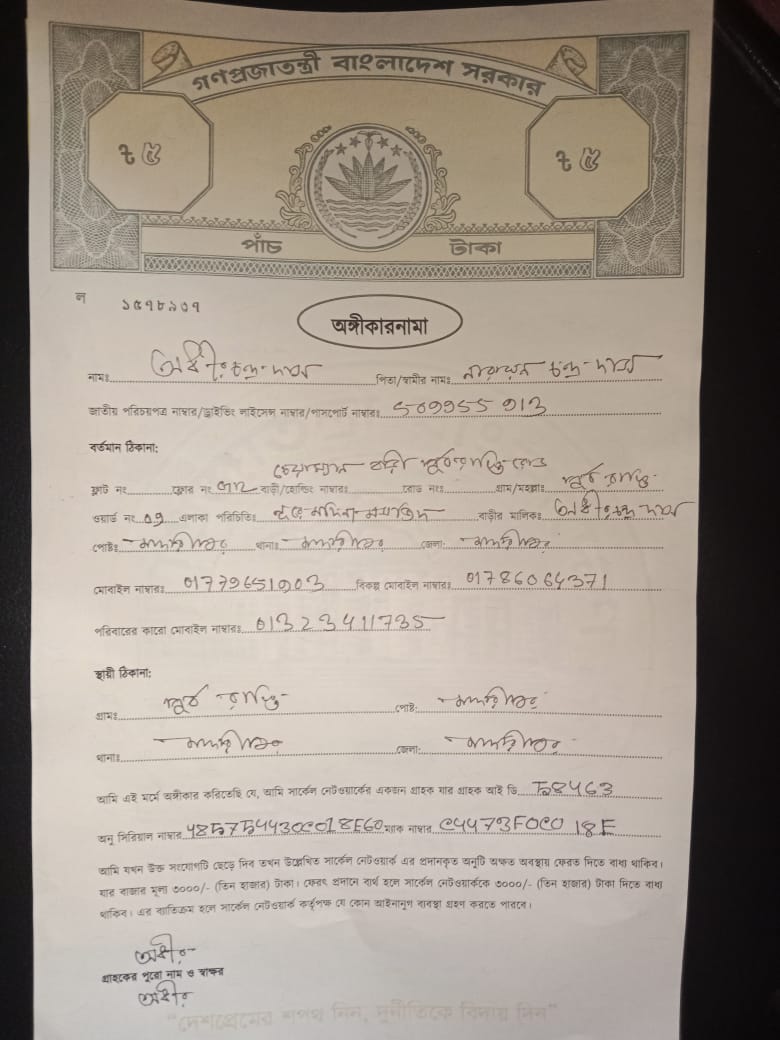 গণপ্রজাতন্ত্রী বাংলাদেশ সরকার
৳ ৫ ৳ ৫
পাঁচ টাকা
ল ১৫৭৮৯০৭
অঙ্গীকারনামা
নামঃ অধীর চন্দ্র দাস পিতা/স্বামীর নামঃ নারায়ন চন্দ্র দাস
জাতীয় পরিচয়পত্র নাম্বার/ড্রাইভিং লাইসেন্স নাম্বার/পাসপোর্ট নাম্বারঃ
বর্তমান ঠিকানা:
ফ্লাট নং ফ্লোর নং বাড়ী/হোল্ডিং নাম্বারঃ রোড নংঃ গ্রাম/মহল্লাঃ পূর্ব
ওয়ার্ড নং এলাকা পরিচিতিঃ বাড়ীর মালিকঃ অধীর চন্দ্র দাস
পোষ্টঃ থানাঃ জেলা:
মোবাইল নাম্বারঃ 01779651903 বিকল্প মোবাইল নাম্বারঃ 01786064371
পরিবারের কারো মোবাইল নাম্বারঃ 01323411735
স্থায়ী ঠিকানা:
গ্রামঃ পূর্ব পোষ্ট:
থানাঃ জেলা:
আমি এই মর্মে অঙ্গীকার করিতেছি যে, আমি সার্কেল নেটওয়ার্কের একজন গ্রাহক যার গ্রাহক আই ডি
অনু সিরিয়াল নাম্বার 485754430C018E60 ম্যাক নাম্বার C4473F0C018E
আমি যখন উক্ত সংযোগটি ছেড়ে দিব তখন উল্লেখিত সার্কেল নেটওয়ার্ক এর প্রদানকৃত অনুটি অক্ষত অবস্থায় ফেরত দিতে বাধ্য থাকিব।
যার বাজার মূল্য ৩০০০/- (তিন হাজার) টাকা। ফেরৎ প্রদানে ব্যর্থ হলে সার্কেল নেটওয়ার্ককে ৩০০০/- (তিন হাজার) টাকা দিতে বাধ্য
থাকিব। এর ব্যতিক্রম হলে সার্কেল নেটওয়ার্ক কর্তৃপক্ষ যে কোন আইনানুগ ব্যবস্থা গ্রহণ করতে পারবে।
অধীর
গ্রাহকের পুরো নাম ও স্বাক্ষর
অধীর
"দেশপ্রেমের শপথ নিন, দুর্নীতিকে বিদায় দিন"